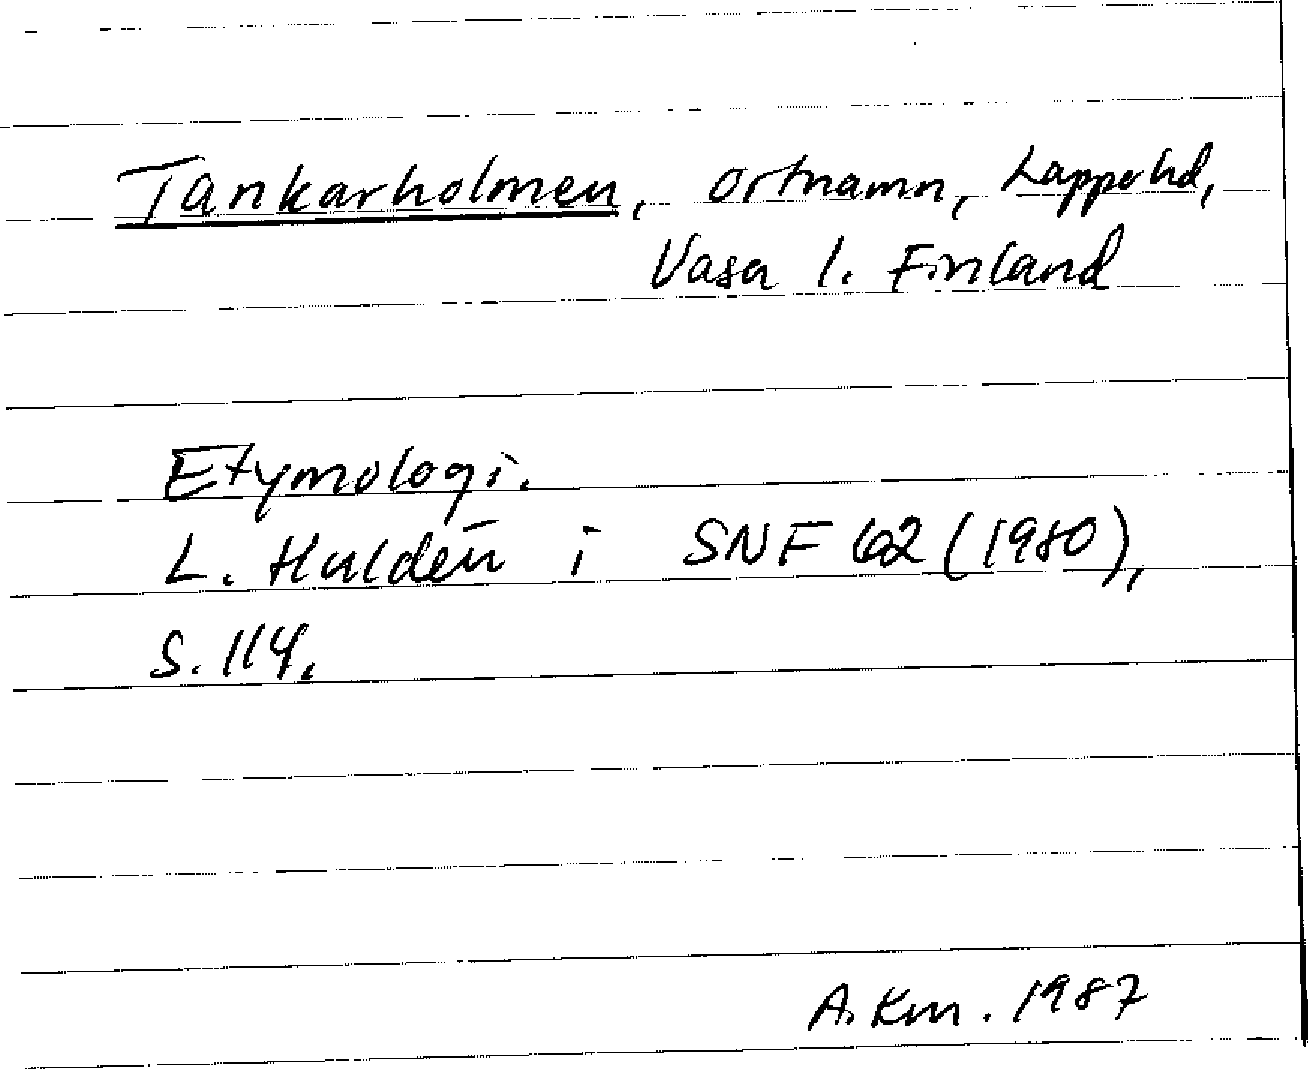 Tankarholmen, ortnamn, Lapper hd,
Vasa l. Finland
Etymologi.
L. Huldén i SNF 62 (1980),
S. 114.
A. Km. 1987